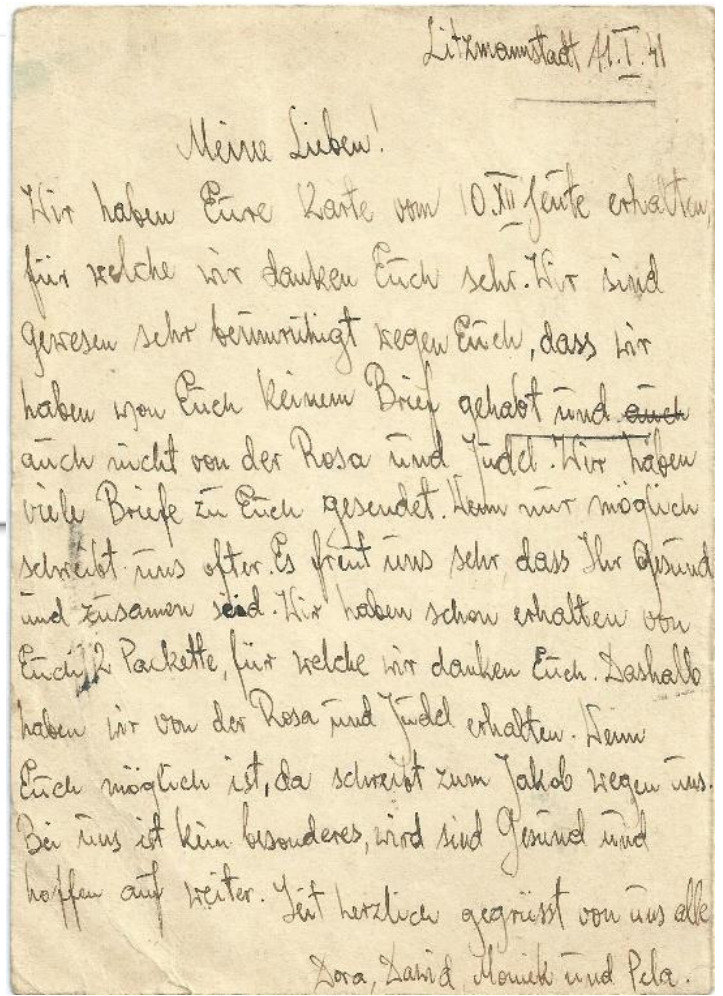 Litzmannstadt 11.I.41
Meine Lieben!
Wir haben Eure Karte vom 10.XII heute erhalten,
für welche wir danken Euch sehr. Wir sind
gewesen sehr beunruhigt wegen Euch, dass wir
haben von Euch keinem Brief gehabt und auch
auch nicht von der Rosa und Judel. Wir haben
viele Briefe zu Euch gesendet. Wenn nur möglich
schreibt uns ofter. Es freut uns sehr, dass Ihr Gesund
und zusamen seid. Wir haben schon erhalten von
Euch 2 Packette, für welche wir danken Euch. Dashalb
haben wir von der Rosa und Judel erhalten. Wenn
Euch möglich ist, da schreibt zum Jakob wegen uns.
Bei uns ist kein besonderes, wird sind Gesund und
hoffen auf weiter. Seit herzlich gegrüsst von uns alle
Dora, Dawid, Moniek und Pela.